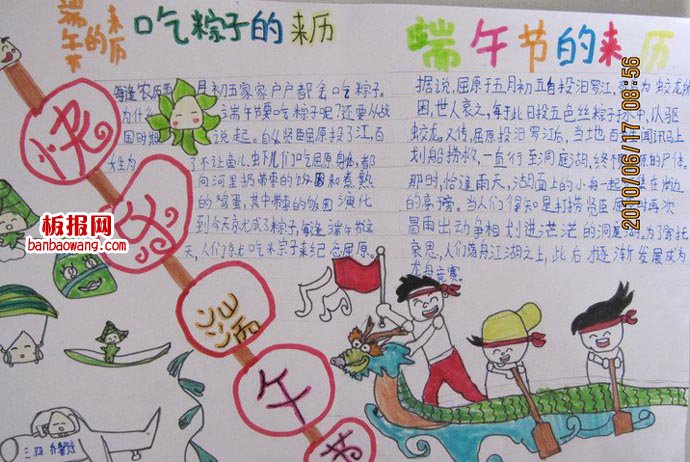 端午节的来历
吃粽子的来历
端午节的来历
快
乐
端
午
节
每逢农历五月初五家家户户都会吃粽子。
为什么端午节要吃粽子呢？还要从战
国时期说起。自从贤臣屈原投了江，百
姓为了不让鱼儿、虾儿们吃屈原身体，都
向河里扔带枣的饭团和煮熟
的鸡蛋，其中带枣的饭团演化
到今天京尤成了粽子，每逢端午节这
天，人们京尤吃粽子来纪念屈原。
据说，屈原于五月初五自投汨罗江，为蛟龙所
困，世人哀之，每于此日投五色丝粽子于水中，以驱
蛟龙。又传，屈原投汨罗江后，当地百姓闻讯马上
划船捞救，一直行至洞庭湖，终不见屈原的尸体。
那时，恰逢雨天，湖面上的小舟一起汇集在岸边
的亭旁。当人们得知是打捞贤臣屈时再次
冒雨出动争相划进茫茫的洞庭湖。为了寄托
哀思，人们荡舟江湖之上，此后逐渐发展成为
龙舟竞赛。
板报网
banbaowang.com
2010/06/17 08:56